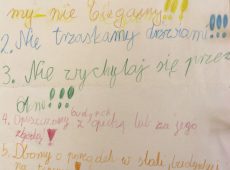 my – nie biegamy!!!
2. Nie trzaskamy drzwiami!!!
3. Nie wychylaj się przez
okno!!!
budynek
4. Opuszczamy z opieką lub za jego
zgodą!
5. Dbamy o porządek w szkole,